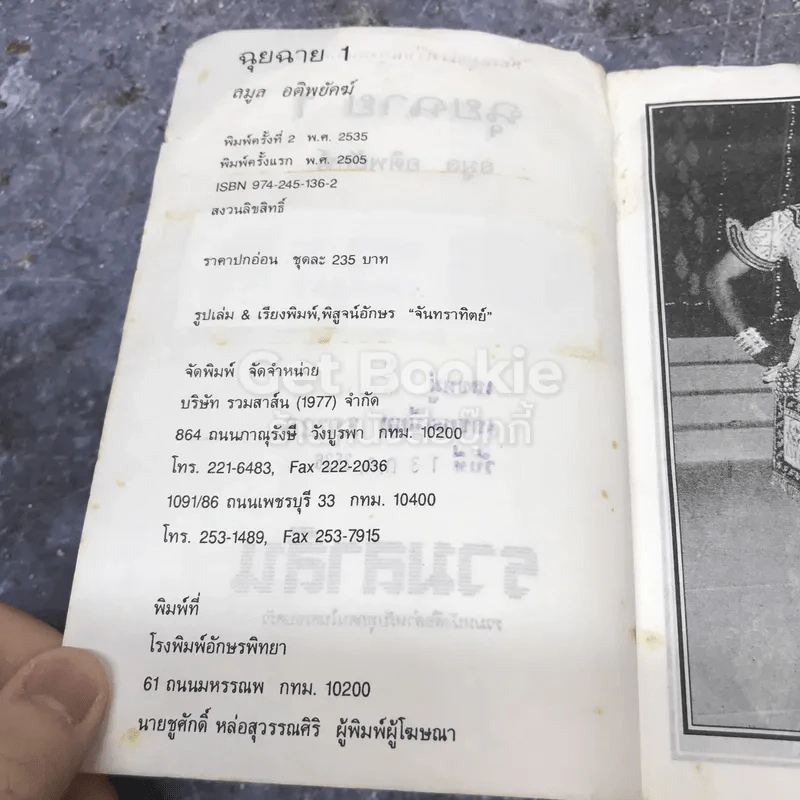 ฉุยฉาย 1
ลมูล อติพยัคฆ์
พิมพ์ครั้งที่ 2 พ.ศ. 2535
พิมพ์ครั้งแรก พ.ศ. 2505
ISBN 974-245-136-2
สงวนลิขสิทธิ์
ราคาปกอ่อน ชุดละ 235 บาท
รูปเล่ม & เรียงพิมพ์,พิสูจน์อักษร "จันทราทิตย์"
จัดพิมพ์ จัดจำหน่าย
บริษัท รวมสาส์น (1977) จำกัด
864 ถนนภาณุรังษี วังบูรพา กทม. 10200
โทร. 221-6483, Fax 222-2036
1091/86 ถนนเพชรบุรี 33 กทม. 10400
โทร. 253-1489, Fax 253-7915
พิมพ์ที่
โรงพิมพ์อักษรพิทยา
61 ถนนมหรรณพ กทม. 10200
นายชูศักดิ์ หล่อสุวรรณศิริ ผู้พิมพ์ผู้โฆษณา
Get Bookie
ร้านหนังสือเก็ทบุ๊กกี้